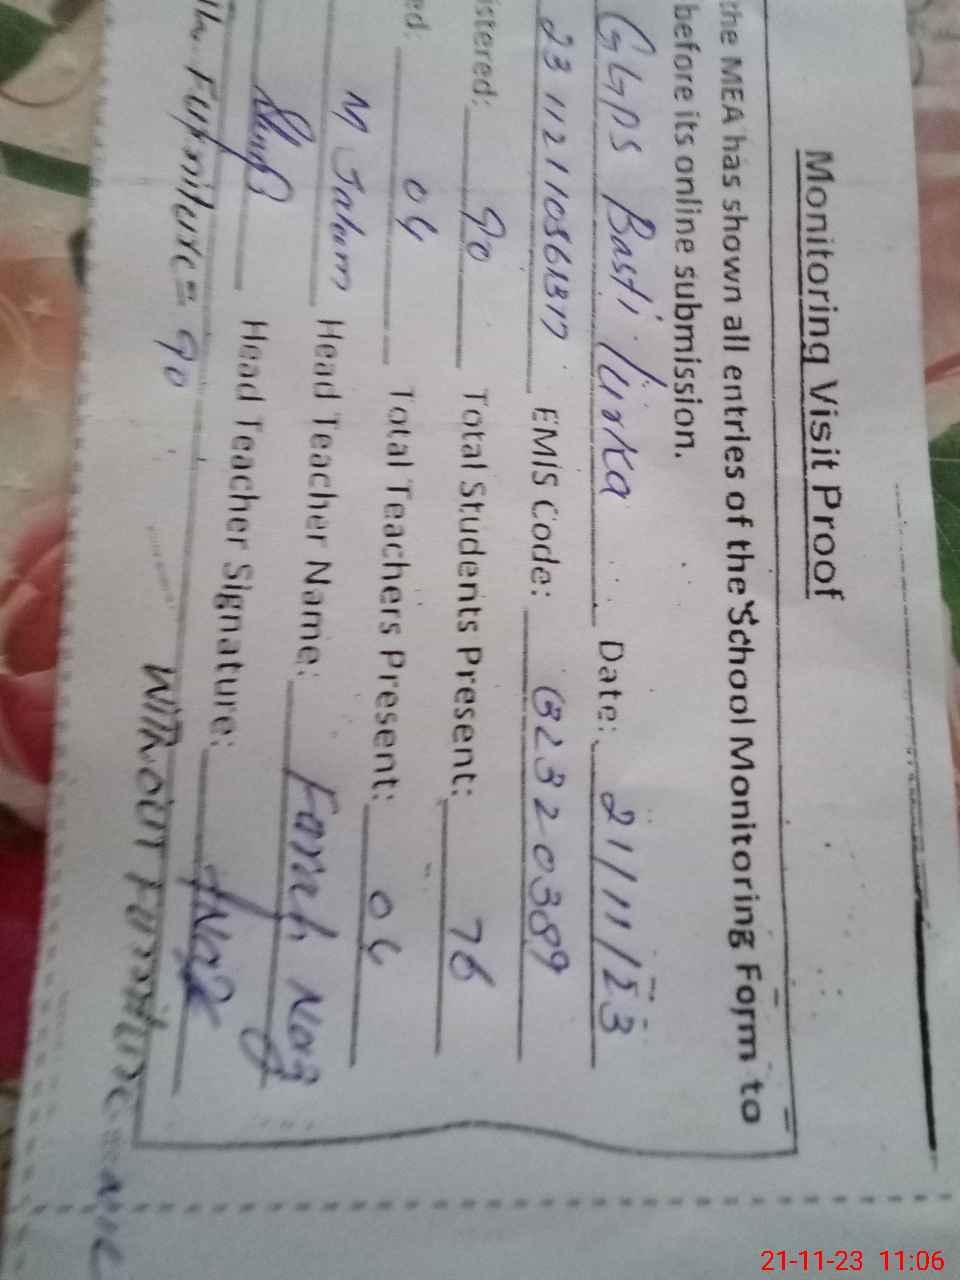 Monitoring Visit Proof
the MEA has shown all entries of the School Monitoring Form to
before its online submission.
GGPS Basti Date: 21/11/23
EMIS Code: 32320389
istered: 90 Total Students Present: 76
ed: 04 Total Teachers Present: 04
M Head Teacher Name: Farah Naz
Head Teacher Signature:
Furniture = 90
Without Furniture =
21-11-23 11:06